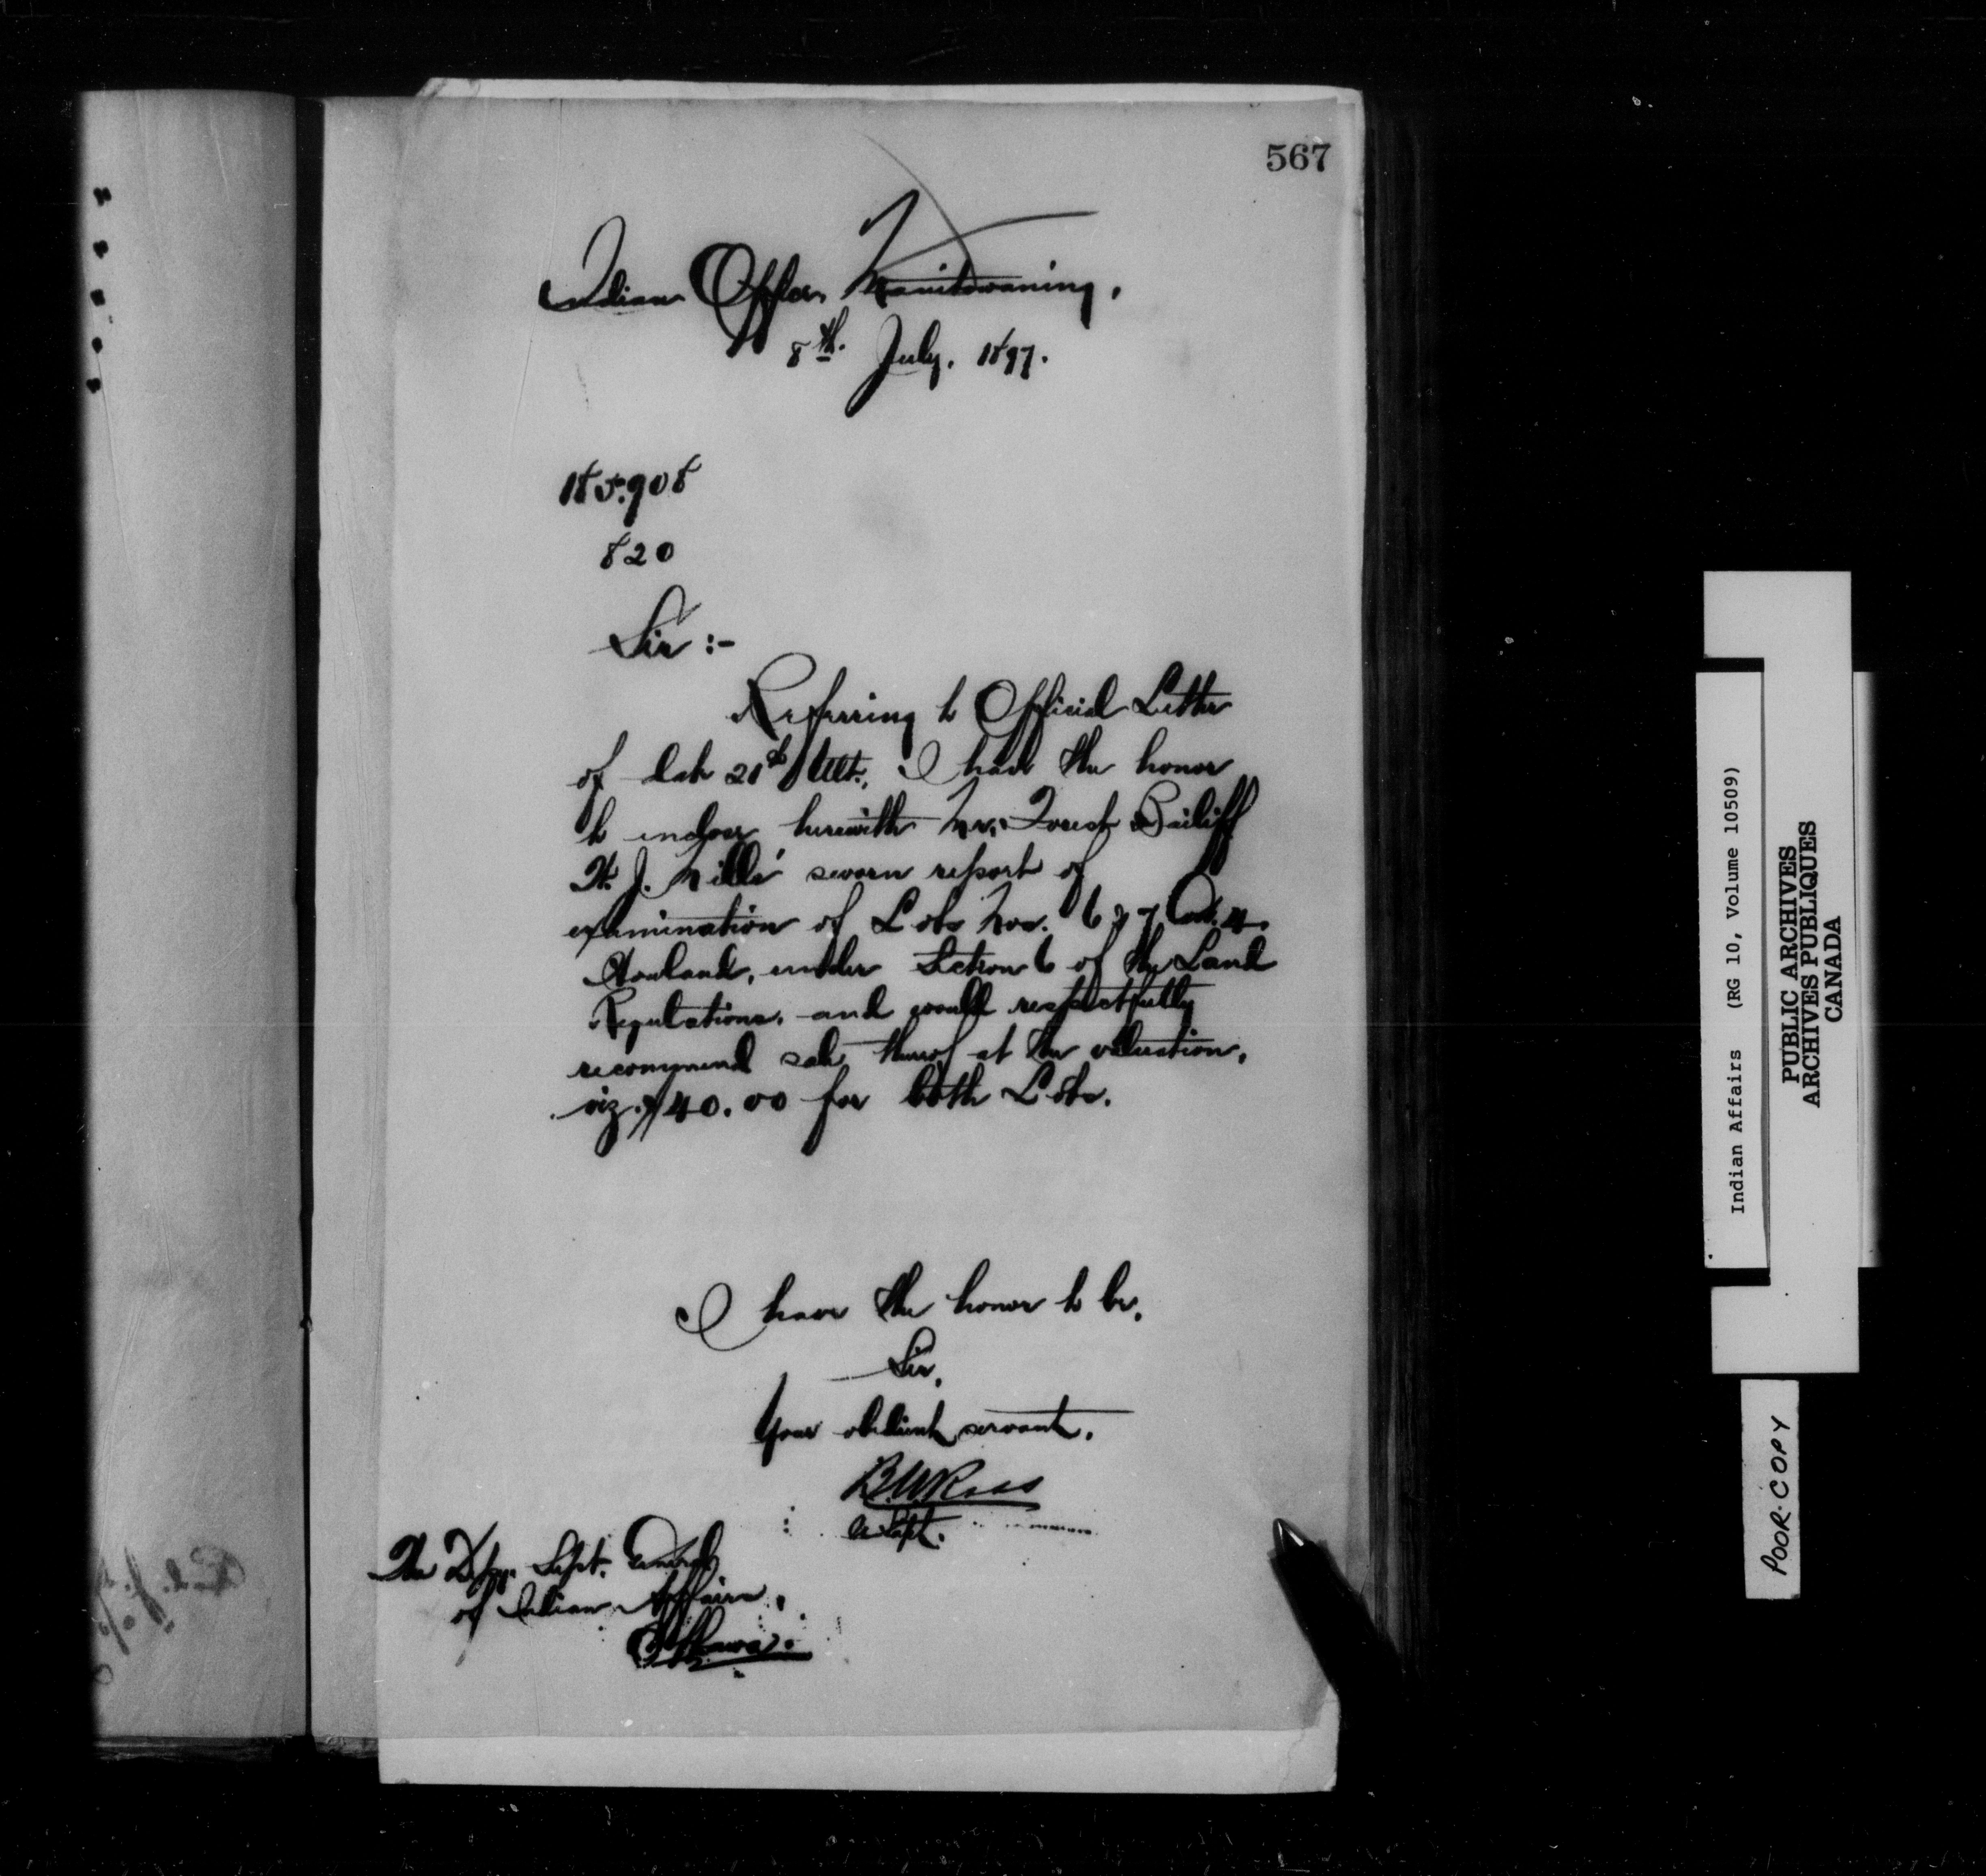 567
Indian Office, Manitowaning,
8th. July. 1897.
185.908
820
Sir :-
Referring to Official Letter
of date 21st Ult., I have the honor
to enclose herewith Mr. Forest Bailiff
W. J. Mills' sworn report of
examination of Lots Nos. 6 & 7 Con. 4.
Howland, under Section 6 of the Land
Regulations, and would respectfully
recommend sale thereof at the valuation,
viz. $40.00 for both Lots.
I have the honor to be,
Sir,
Your obedient servant,
B.W. Ross
The Dpy. Supt. General
of Indian Affairs,
Ottawa.
Indian Affairs (RG 10, Volume 10509)
PUBLIC ARCHIVES
ARCHIVES PUBLIQUES
CANADA
POOR COPY